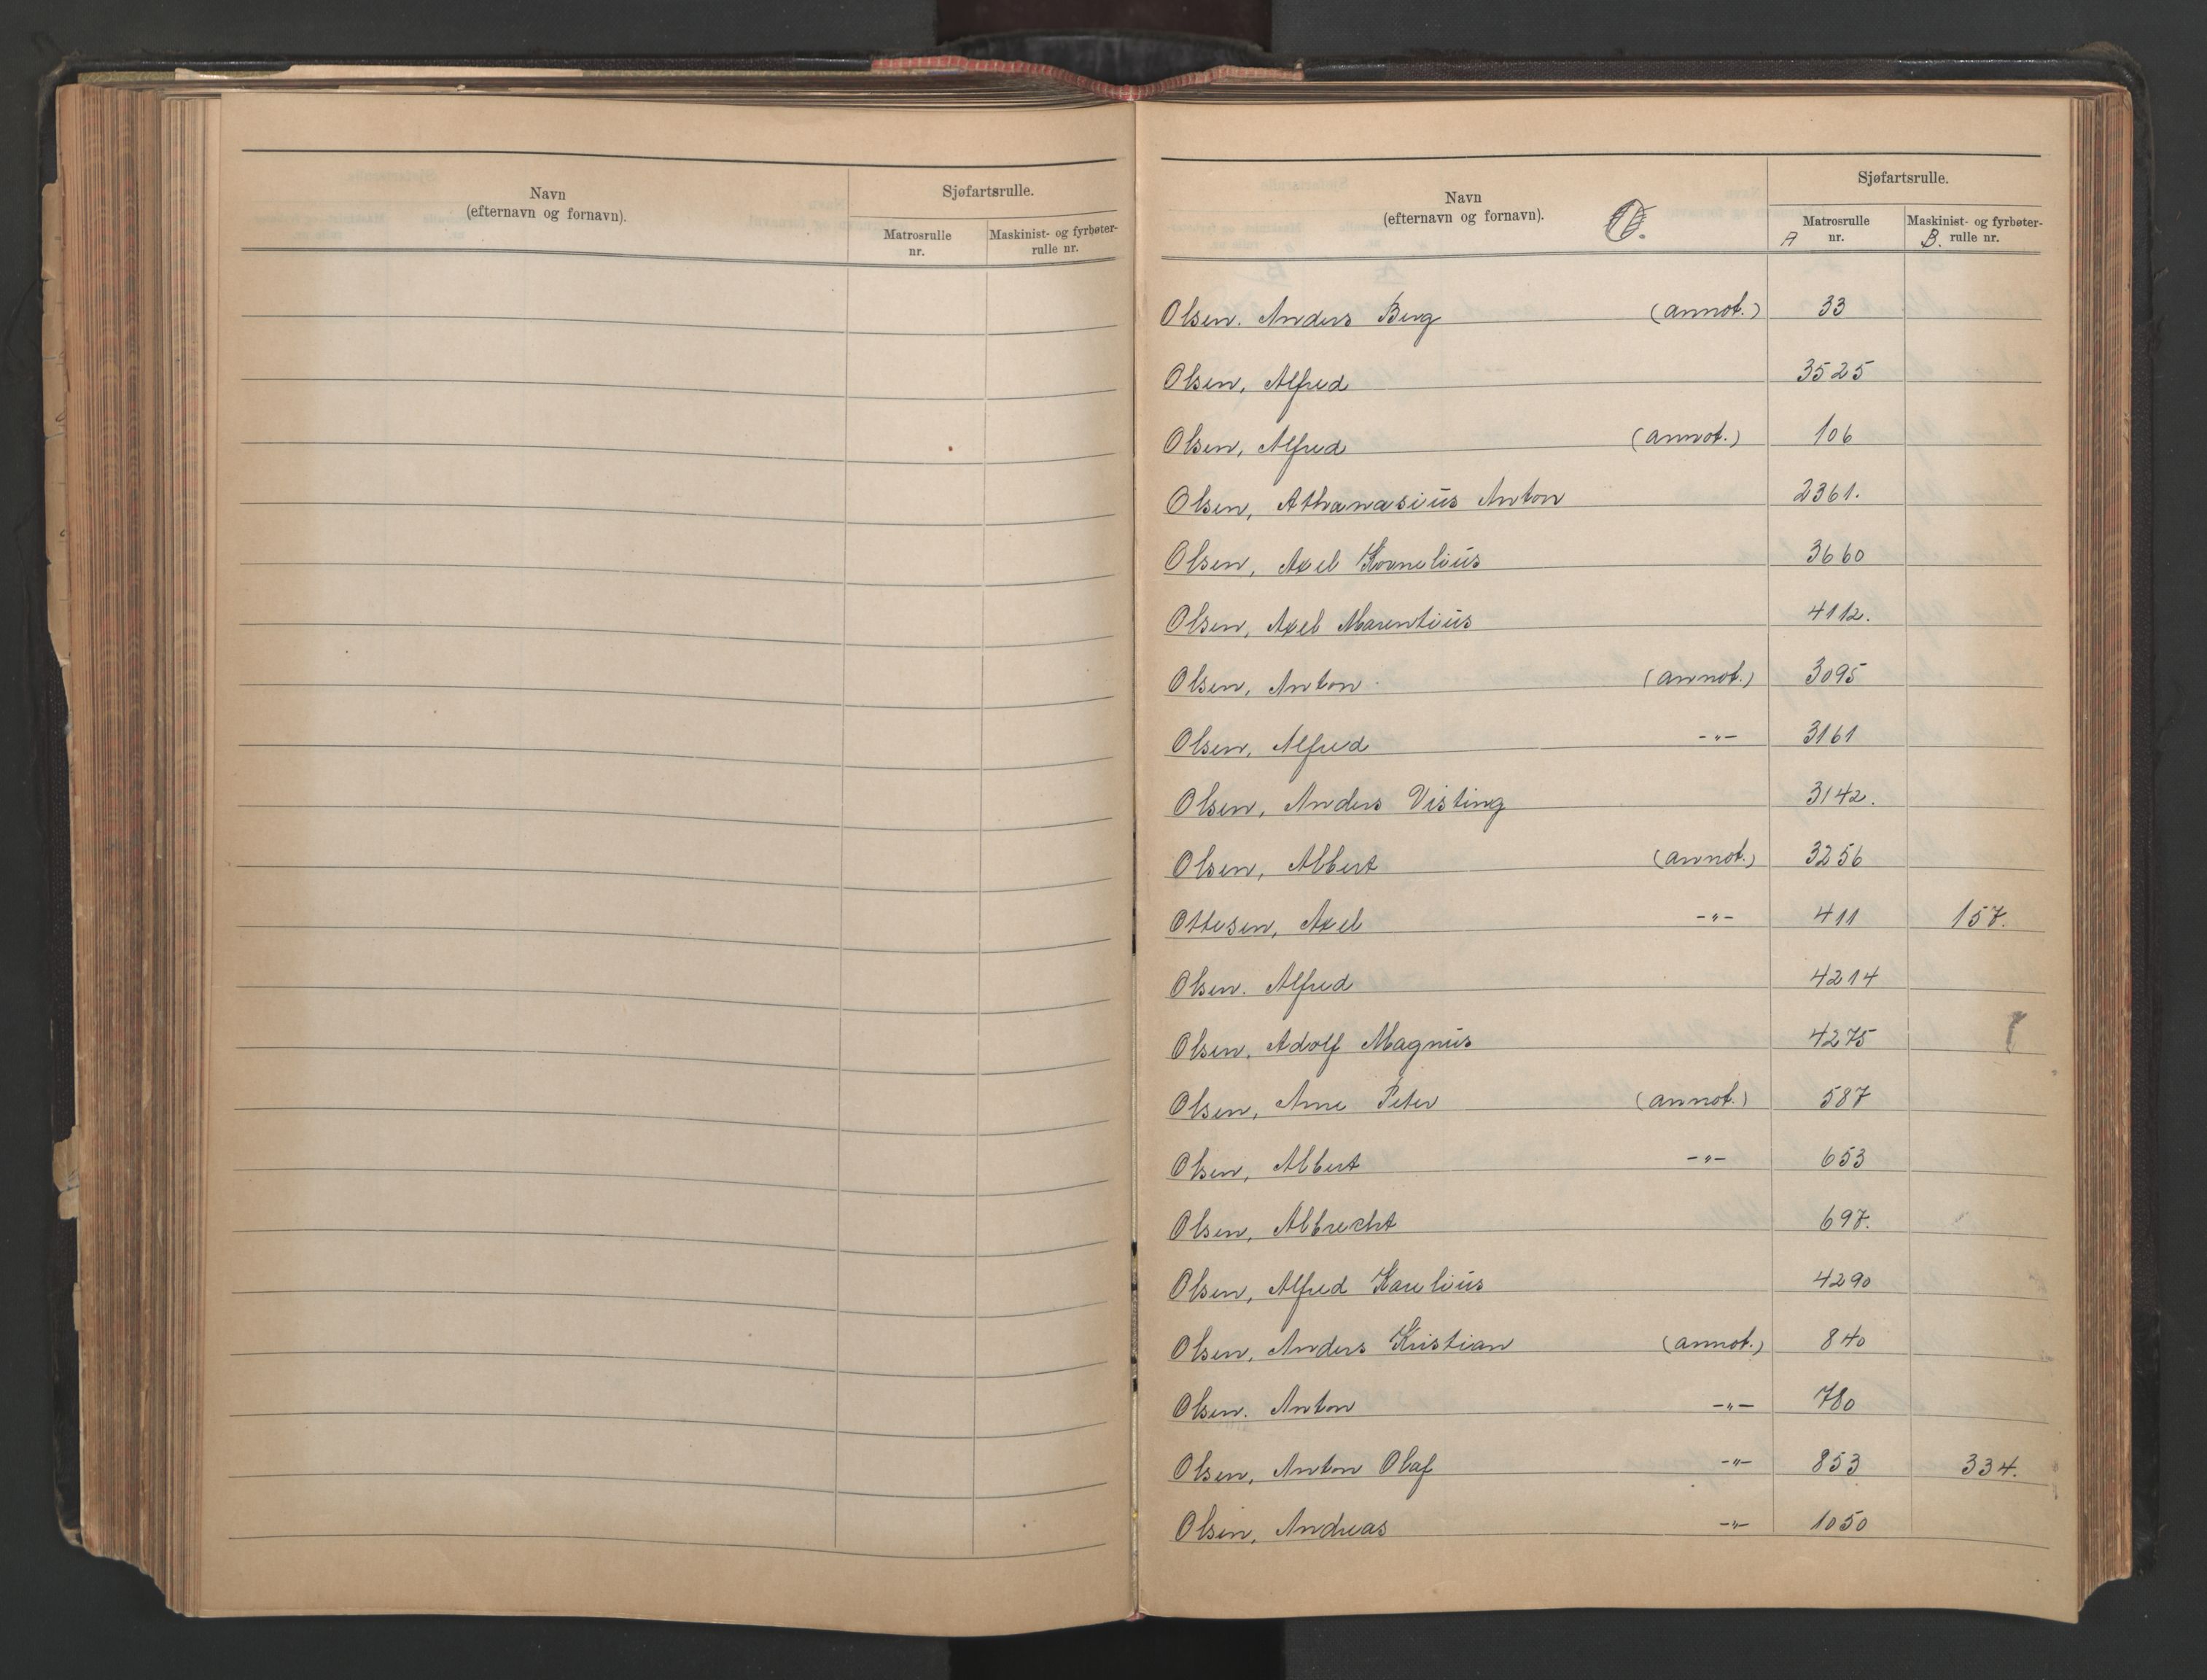 Navn
(efternavn og fornavn).
Sjøfartsrulle.
Matrosrulle
nr.
Maskinist- og fyrbøter-
rulle nr.
Navn
(efternavn og fornavn).
O.
Sjøfartsrulle.
Matrosrulle
A nr.
Maskinist- og fyrbøter-
B. rulle nr.
Olsen. Anders Berg (annot.) 33
Olsen, Alfred 3525
Olsen, Alfred (annot.) 106
Olsen, Athanasius Anton 2361.
Olsen, Axel Kornelius 3660
Olsen, Axel Marentius 4112.
Olsen, Anton (annot.) 3095
Olsen, Alfred -"- 3161
Olsen, Anders Visting 3142.
Olsen, Albert (annot.) 3256
Ottesen, Axel -"- 411 157.
Olsen. Alfred 4214
Olsen, Adolf Magnus 4275
Olsen, Arne Peter (annot.) 587
Olsen, Albert -"- 653
Olsen, Albrecht 697.
Olsen, Alfred Karelius 4290
Olsen, Anders Kristian (annot.) 840
Olsen. Anton -"- 780
Olsen, Anton Olaf -"- 853 334.
Olsen, Andreas -"- 1050